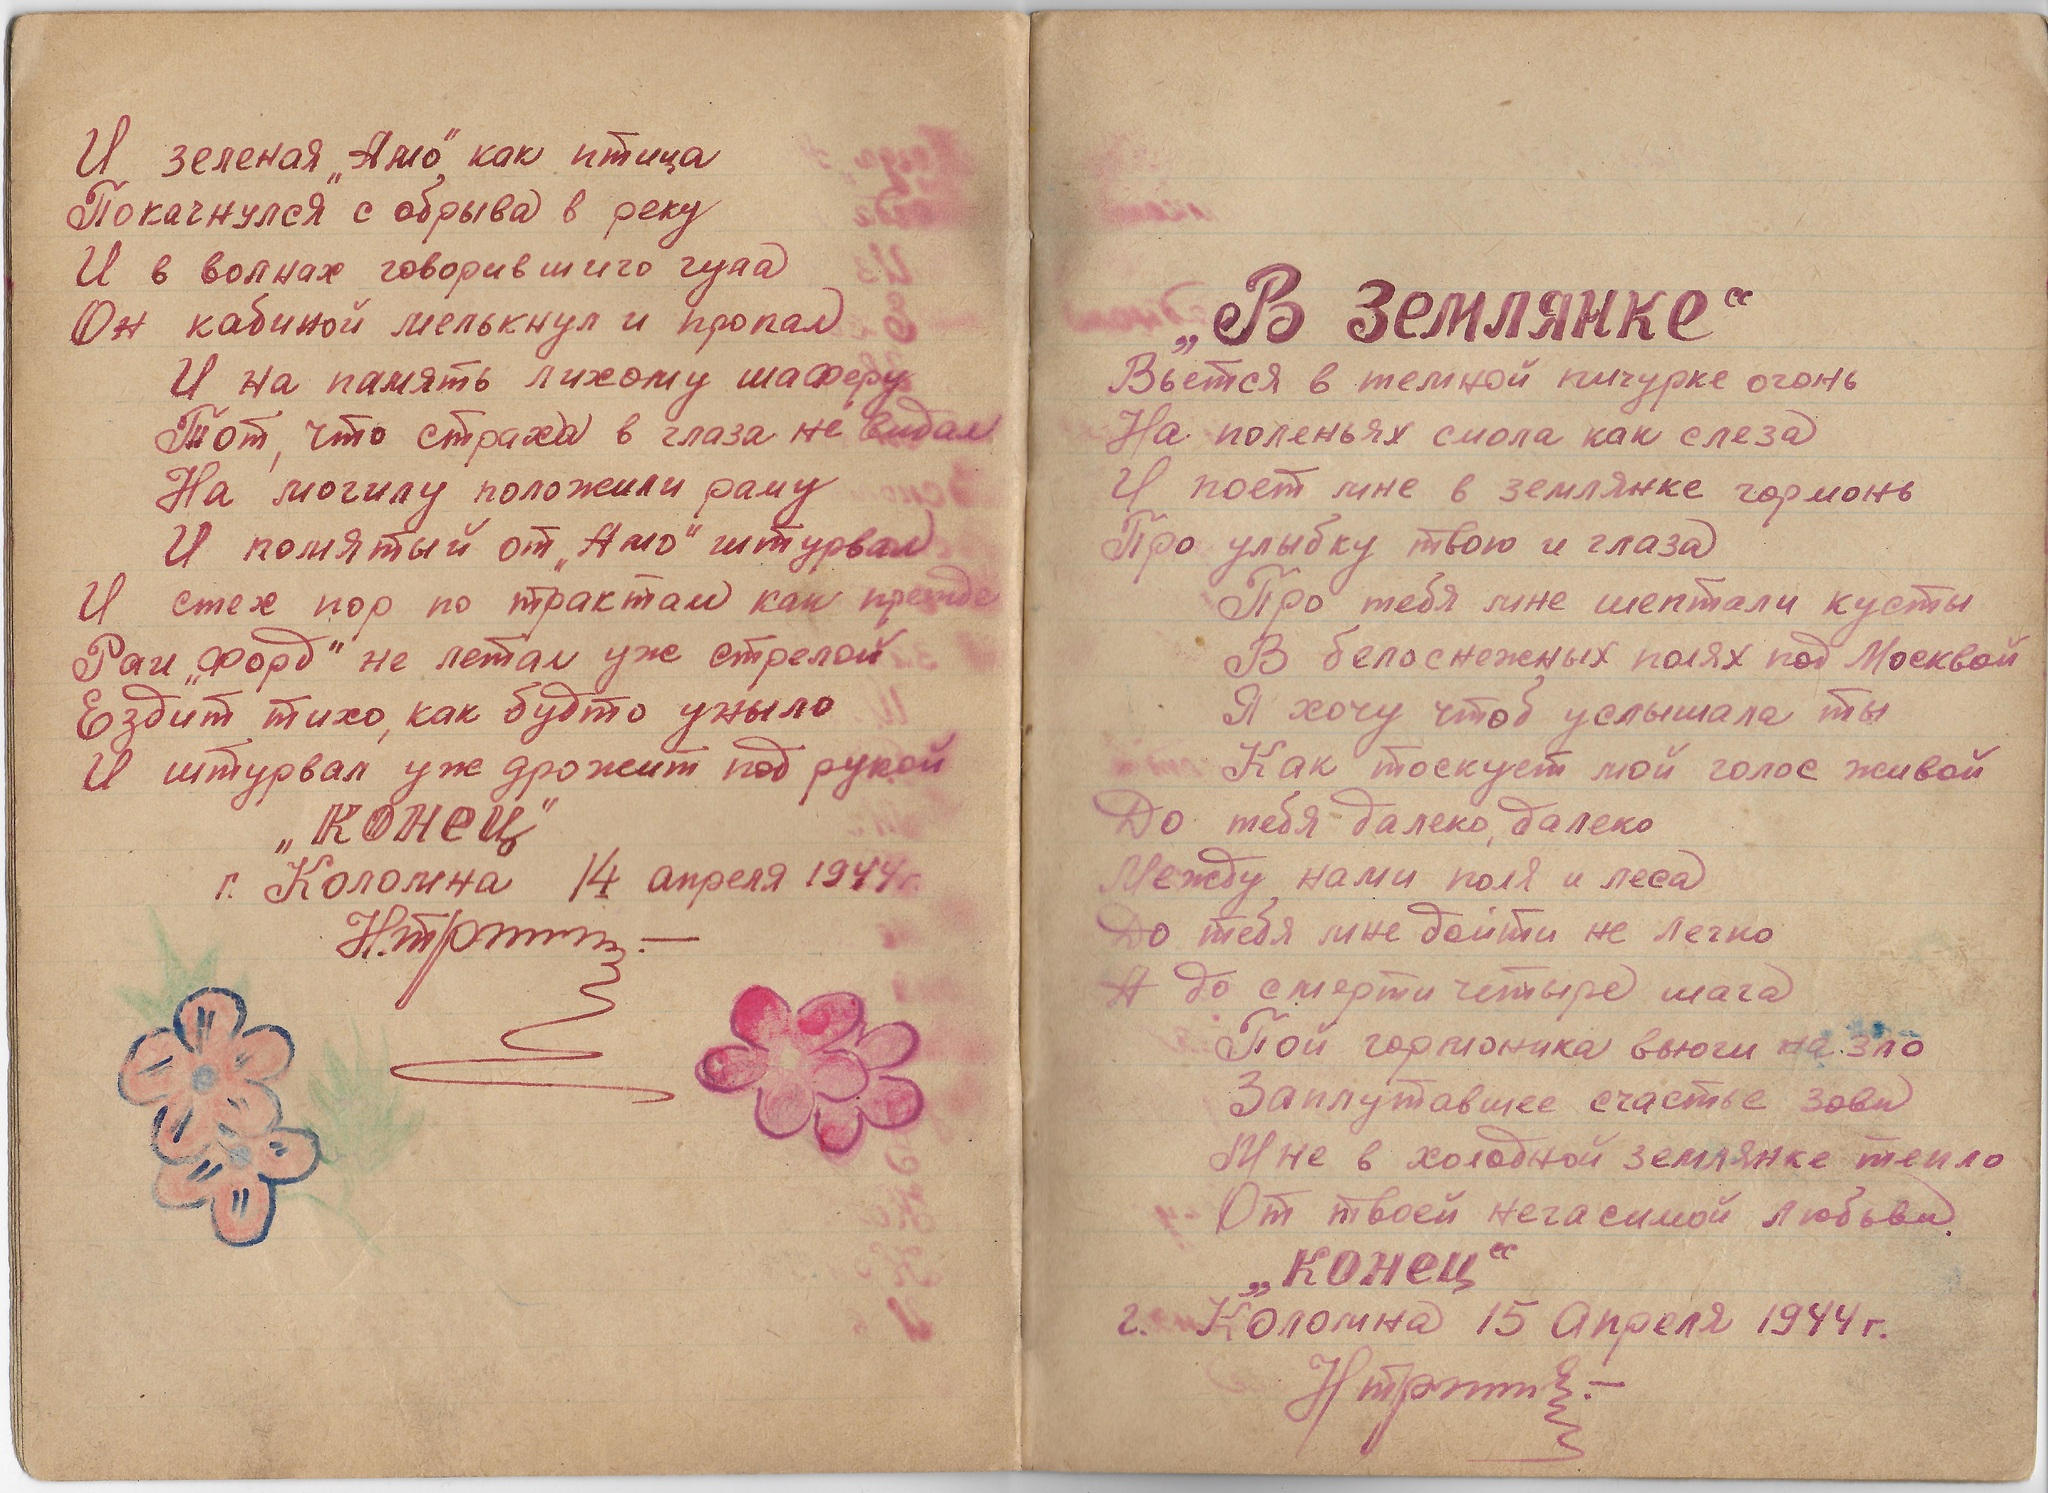 И зеленая „Амо" как птица
Покачнулся с обрыва в реку
И в волнах говорившиго гула
Он кабиной мелькнул и пропал
И на память лихому шаферу
Тот, что страха в глаза не видал
На могилу положили раму
И помятый от „Амо" штурвал
И стех пор по трактам как прежде
Раи „Форд" не летал уж стрелой
Ездит тихо, как будто уныло
И штурвал уж дрожит под рукой
„Конец"
г. Коломна 14 апреля 1944 г.
„В землянке"
Вьется в темной пичурке огонь
На поленьях смола как слеза
И поет мне в землянке гормонь
Про улыбку твою и глаза
Про тебя мне шептали кусты
В белоснежных полях под Москвой
Я хочу чтоб услышала ты
Как тоскует мой голос живой
До тебя далеко, далеко
Между нами поля и леса
До тебя мне дойти не легко
А до смерти четыре шага
Пой гормоника вьюги на зло
Заплутавшее счастье зови
Мне в холодной землянке тепло
От твоей негасимой любьви.
„Конец"
г. Коломна 15 Апреля 1944 г.